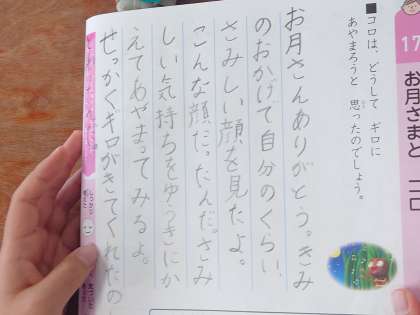 17
お月さまと コロ
■コロは、どうして ギロに
あやまろうと 思ったのでしょう。
お月さんありがとう。きみ
のおかげで自分のくらい、
さみしい顔を見たよ。
こんな顔だったんだ。さみ
しい気持ちをゆうきにか
えてあやまってみるよ。
せっかくギロがきてくれたの